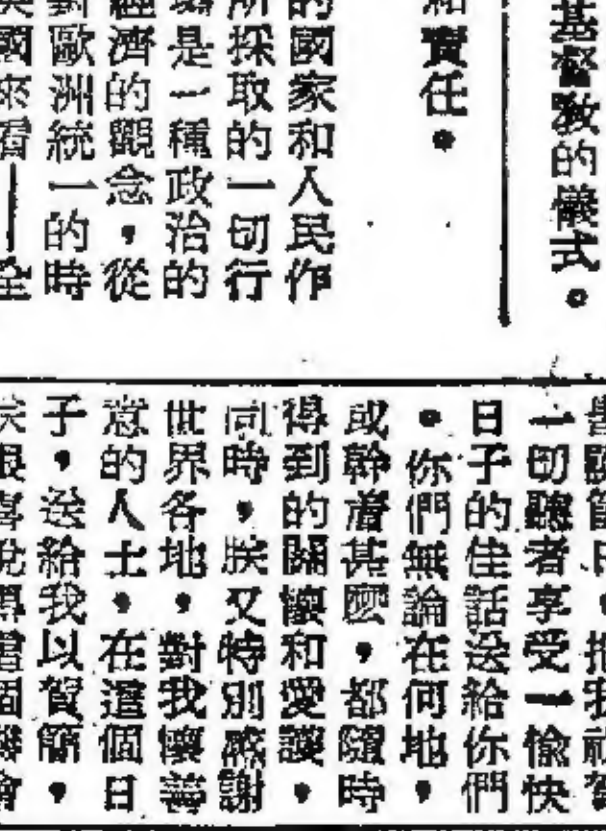 基督敎的儀式。
和責任。
的國家和人民作
所採取的一切行
場是一種政治的
經濟的觀念,從
對歐洲統一的時
英國來看——全
一切聽者享受一愉快
日子的佳話送給你們
。你們無論在何地,
或幹着甚麼,都隨時
得到的關懷和愛護,
同時,朕又特別感謝
世界各地,對我懷善
意的人士,在這個日
子,送給我以賀簡,